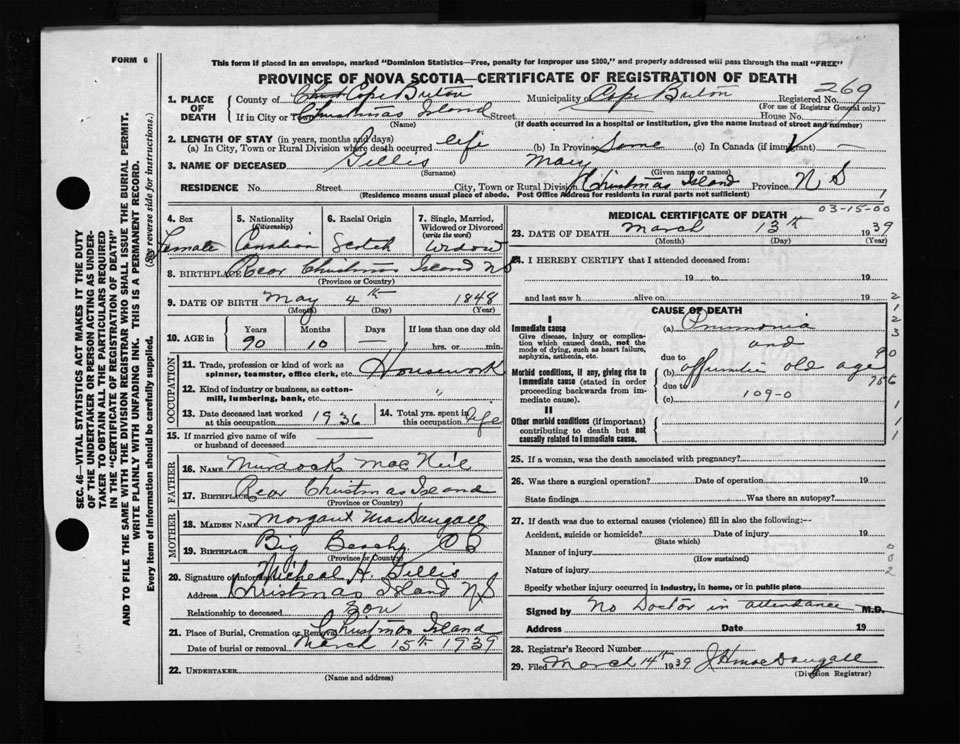 FORM 6
This form if placed in an envelope, marked "Dominion Statistics—Free, penalty for improper use $300," and properly addressed will pass through the mail "FREE"
PROVINCE OF NOVA SCOTIA—CERTIFICATE OF REGISTRATION OF DEATH
1. PLACE OF DEATH
County of Cape Breton Municipality of Cape Breton Registered No. 269
(For use of Registrar General only)
If in City or Town Christmas Island Street House No.
(Name) (If death occurred in a hospital or institution, give the name instead of street and number)
2. LENGTH OF STAY (in years, months and days)
(a) In City, Town or Rural Division where death occurred life (b) In Province Same (c) In Canada (if immigrant) —
3. NAME OF DECEASED Gillis Mary
(Surname) (Given name or names)
RESIDENCE No. Street City, Town or Rural Division Christmas Island Province N S
(Residence means usual place of abode. Post Office Address for residents in rural parts not sufficient)
4. Sex 5. Nationality (Citizenship) 6. Racial Origin 7. Single, Married, Widowed or Divorced (write the word)
Female Canadian Scotch Widow
8. BIRTHPLACE Rear Christmas Island NS
(Province or Country)
9. DATE OF BIRTH May 4th 1848
(Month) (Day) (Year)
10. AGE in Years Months Days If less than one day old
90 10 — hrs. or min.
OCCUPATION
11. Trade, profession or kind of work as spinner, teamster, office clerk, etc. Housework
12. Kind of industry or business, as cotton-mill, lumbering, bank, etc. "
13. Date deceased last worked at this occupation 1936 14. Total yrs. spent in this occupation life
15. If married give name of wife or husband of deceased
FATHER
16. NAME Murdock MacNeil
17. BIRTHPLACE Rear Christmas Island
(Province or Country)
MOTHER
18. MAIDEN NAME Margaret MacDougall
19. BIRTHPLACE Big Beach CB
(Province or Country)
20. Signature of informant Micheal H. Gillis
Address Christmas Island NS
Relationship to deceased Son
21. Place of Burial, Cremation or Removal Christmas Island
Date of burial or removal March 15th 1939
22. UNDERTAKER
(Name and address)
MEDICAL CERTIFICATE OF DEATH
03-15-00
23. DATE OF DEATH March 13th 1939
(Month) (Day) (Year)
24. I HEREBY CERTIFY that I attended deceased from:
19 to 19
and last saw h alive on 19
CAUSE OF DEATH
I
Immediate cause
Give disease, injury or complication which caused death, not the mode of dying, such as heart failure, asphyxia, asthenia, etc.
(a) Pnumonia
and
due to
Morbid conditions, if any, giving rise to immediate cause (stated in order proceeding backwards from immediate cause).
(b) old age
due to
(c) 109-0
II
Other morbid conditions (if important) contributing to death but not causally related to immediate cause.
25. If a woman, was the death associated with pregnancy?
26. Was there a surgical operation? Date of operation 19
State findings Was there an autopsy?
27. If death was due to external causes (violence) fill in also the following:—
Accident, suicide or homicide? Date of injury 19
(State which)
Manner of injury
(How sustained)
Nature of injury
Specify whether injury occurred in industry, in home, or in public place
Signed by No Doctor in attendance M.D.
Address Date 19
28. Registrar's Record Number
29. Filed March 14th 1939 J H MacDougall
(Division Registrar)
SEC. 46—VITAL STATISTICS ACT MAKES IT THE DUTY
OF THE UNDERTAKER OR PERSON ACTING AS UNDER-
TAKER TO OBTAIN ALL THE PARTICULARS REQUIRED
IN THE "CERTIFICATE OF REGISTRATION OF DEATH"
AND TO FILE THE SAME WITH THE DIVISION REGISTRAR WHO SHALL ISSUE THE BURIAL PERMIT.
WRITE PLAINLY WITH UNFADING INK. THIS IS A PERMANENT RECORD.
Every item of information should be carefully supplied. (See reverse side for instructions.)